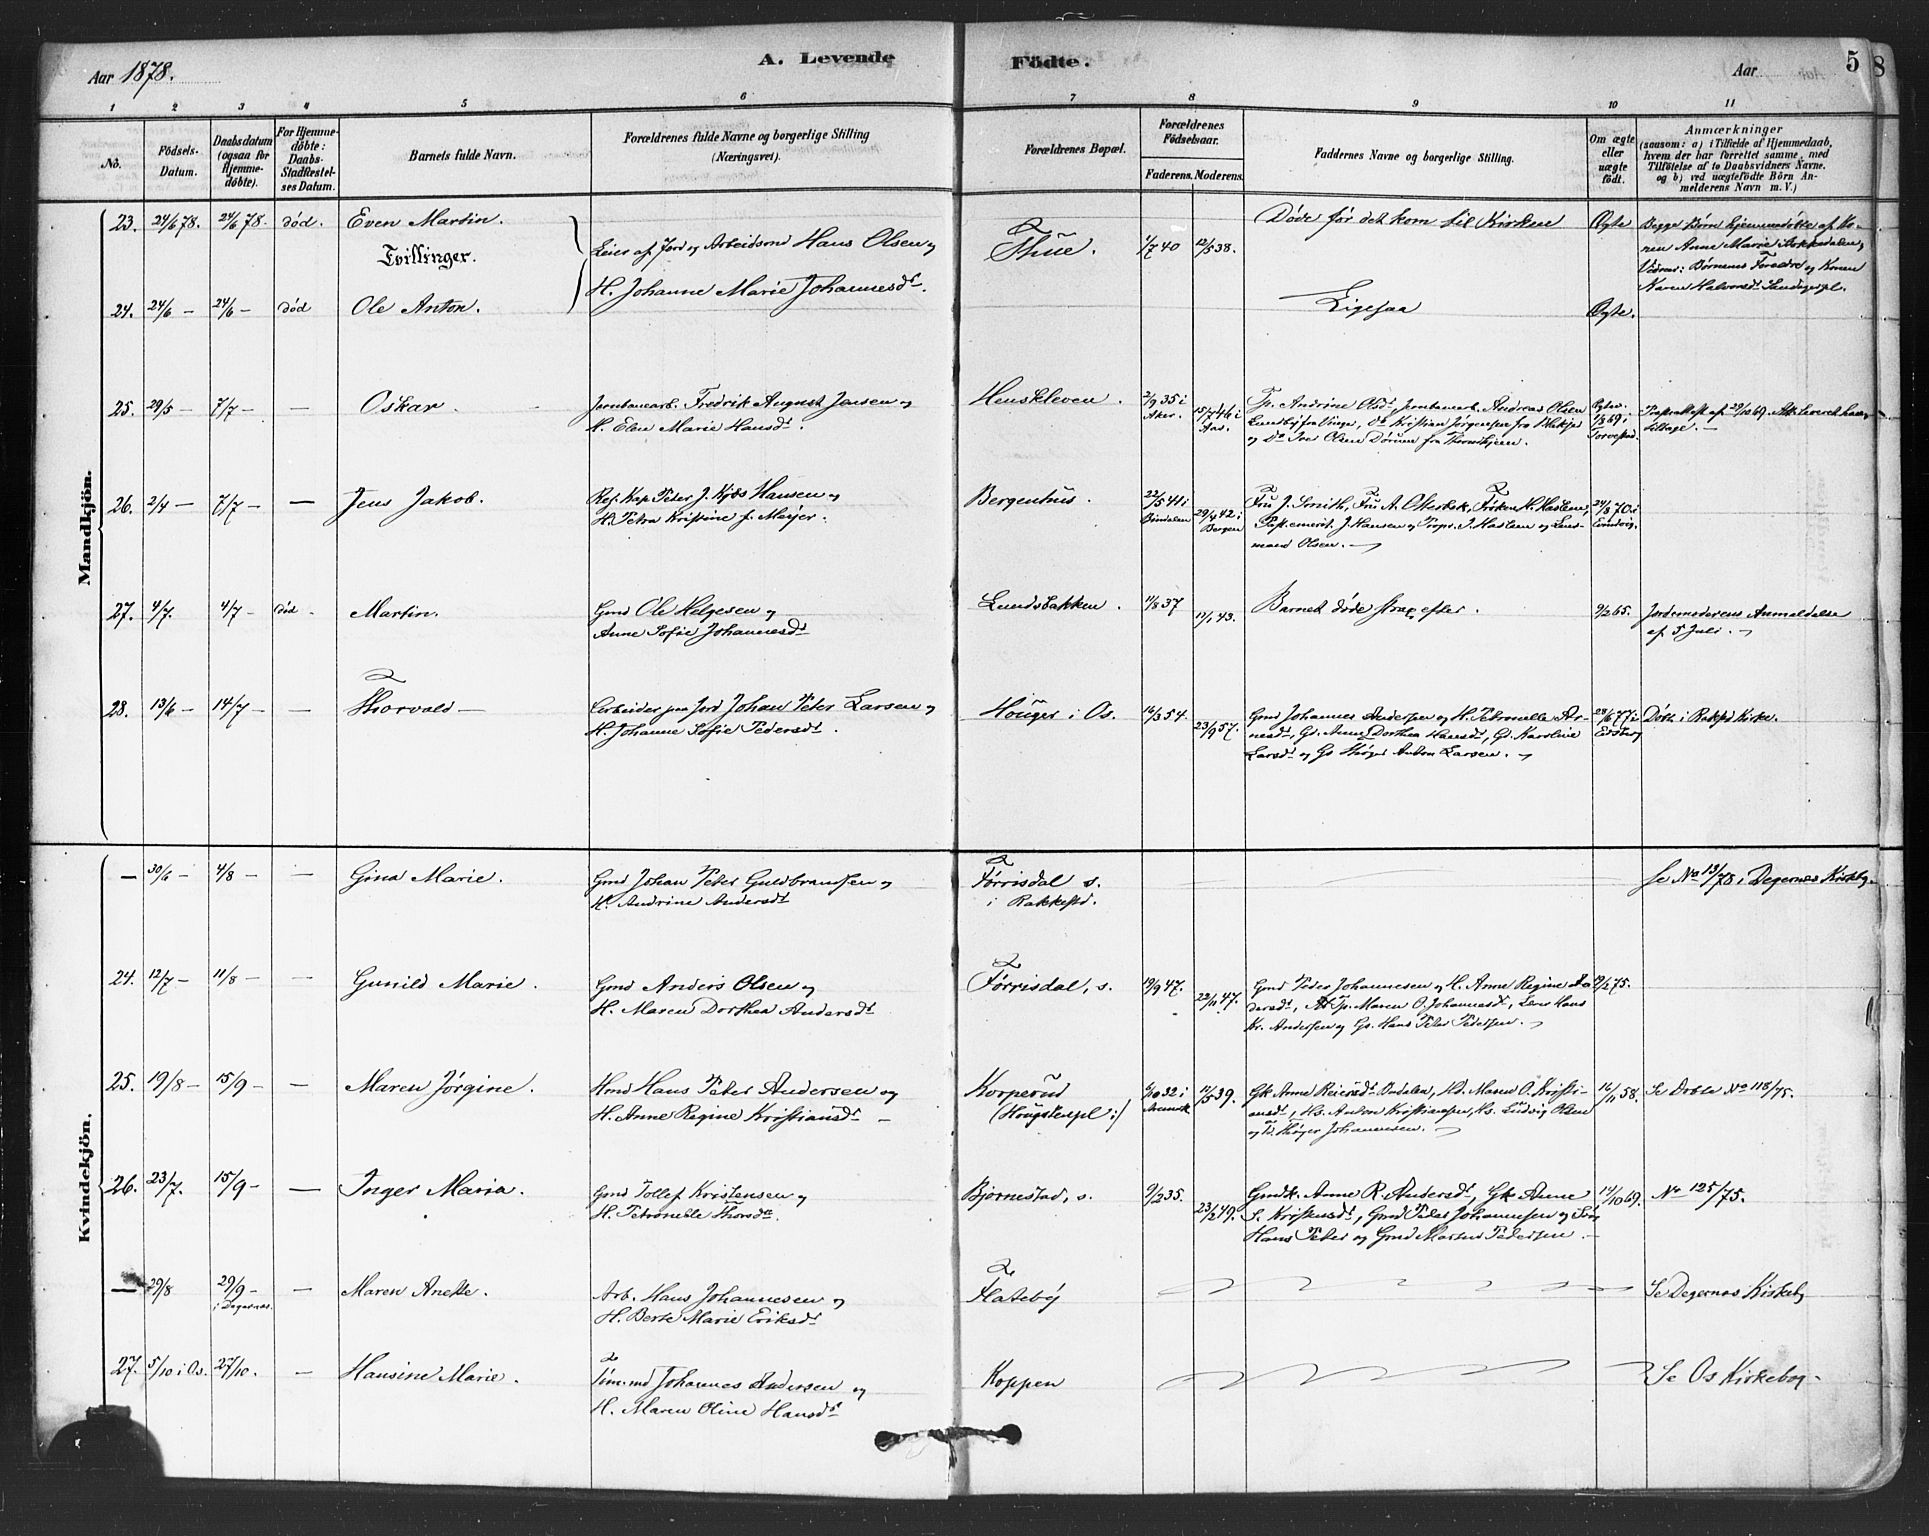 Aar 1878.
A. Levende
Födte.
Aar
5
8
1 2 3 4 5 6 7 8 9 10 11
No.
Födsels-
Datum.
Daabsdatum
(ogsaa for
Hjemme-
døbte).
For Hjemme-
døbte:
Daabs-
Stadfæstel-
ses Datum.
Barnets fulde Navn.
Forældrenes fulde Navne og borgerlige Stilling
(Næringsvei).
Forældrenes Bopæl.
Forældrenes
Födselsaar.
Faderens. Moderens.
Faddernes Navne og borgerlige Stilling.
Om ægte
eller
uægte
født.
Anmærkninger
(saasom: a) i Tilfælde af Hjemmedaab,
hvem der har forrettet samme, med
Tilföielse af to Daabsvidners Navne.
og b) ved uægtefødte Börn An-
melderens Navn m. V.)
Mandkjön.
23. 24/6 78. 24/6 78. død. Even Martin.
Tvillinger.
Leier af Jord og Arbeidsmd Hans Olsen og
H. Johanne Marie Johannesdt.
Thue. 1/7 40 12/5 38. Døde før det kom til Kirken Ægte
Begge Børn hjemmedøbte af Ko-
nen Anne Marie
Vidner: Børnenes Forældre og Konen
Karen Halvorsdt
24. 24/6 — 24/6 — død Ole Anton. Ligesaa Ægte.
25. 29/5 — 7/7 — — Oskar.
Jernbanearb. Fredrik August Jensen og
H. Elen Marie Hansdt.
Henskleven. 2/9 35 i
Aker. 15/7 46 i
Aas.
Tp. Andrine Olsdt, Jernbanearb. Andreas Olsen
fra Vinger, Do Kristian Jørgensen fra
og Do Iver Olsen fra
1/8 69 i
Torvestad
af 29/10 69.
tilbage. —
26. 2/4 — 7/7 — — Jens Jakob.
Ref. Kap. Peter J. Hansen og
H. Petra Kristine f. Meyer.
Bergenhus. 22/5 41 i
Bindalen 29/4 42 i
Bergen
Fru J. Smith, Fru A. Otterbek, Frøken H. Haslem,
J. Hansen og Prop. J. Haslem og Lens-
mand Olsen. —
24/8 70 i
27. 4/7. 4/7 — død. Martin.
Gmd Ole Helgesen og
Anne Sofie Johannesdt
Lundsbakken. 11/8 37 11/1 43. Barnet døde strax efter. 9/2 65. Jordemoderens Anmeldelse
af 5 Juli. —
28. 13/6 — 14/7 — — Thorvald —
Arbeider paa Jord Johan Peter Larsen og
H. Johanne Sofie Pedersdt.
Houger i Os. 16/3 54. 23/9 57.
Gmd Johannes Andersen og H. Petronelle Ar-
nesdt, Gd. Anne Dorthea Hansdt, Gd. Karoline
Larsdt og Gs Anton Larsen. —
28/6 77 i
Eidsberg
Døbt i Rakkstd Kirke.
Kvindekjön.
— 30/6 — 4/8 — — Gina Marie.
Gmd Johan Peter Guldbrandsen og
H. Andrine Andersdt
Førrisdal s.
i Rakkestd.
Se No 13/78 i Degernes Kirkebg.
24. 12/7 — 11/8 — — Gunild Marie.
Gmd Anders Olsen og
H. Maren Dorthea Andersdt
Førrisdal, s. 19/9 47. 22/11 47.
Gmd Peder Johannesen og H. Anne Regine Pe-
dersdt, Tp. Maren O. Johannesdt, Leier Hans
Kr. Andersen og Gs. Hans Peter Pedersen. —
19/2 75.
25. 19/8 — 15/9 — — Maren Jørgine.
Hmd Hans Peter Andersen og
H. Anne Regine Kristiansdt —
Korperud
(Hougstenpl:) 6/10 32 i
Aremark 12/5 39.
Gk Anne Reiersdt Bødalen, Hd. Maren O. Kristi-
ansdt, Hs. Anton Kristiansen, Hs. Ludvig Olsen
og Johannesen. —
16/11 58. Se Dobte No 118/75.
26. 23/7. 15/9 — — Inger Maria.
Gmd Tollef Kristensen og
H. Petronelle Thorsdtr.
Bjørnestad, s. 9/2 35. 23/2 49.
Gmdk. Anne R. Andersdt, Gk Anne
S. Kristensdt, Gmd Peder Johannesen og
Hans Peter og Gmd Martin Pedersen. —
14/10 69. No 125/75.
— 29/8 29/9 —
i Degernes. — Maren Anette.
Arb. Hans Johannesen og
H. Berte Marie Eriksdt
Flatebÿ
Se Degernes Kirkebg
27. 5/10 i Os. 27/10. — Hansine Marie.
Tømmd Johannes Andersen og
H. Maren Oline Hansdt
Koppen
Se Os Kirkebog —